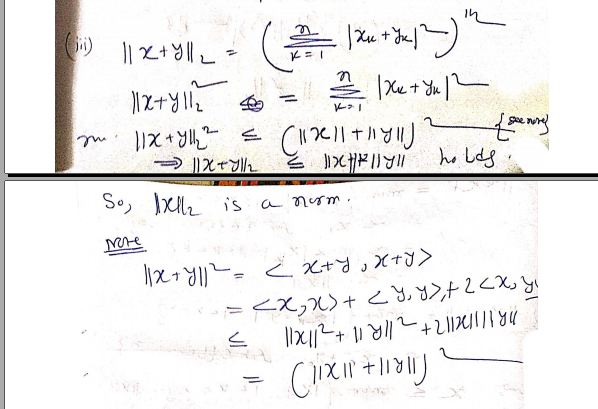 (iii) ||x+y||₂ = ( Σ_{k=1}^{n} |xₖ+yₖ|² )^{1/2}
||x+y||₂² = Σ_{k=1}^{n} |xₖ+yₖ|²
||x+y||₂² ≤ (||x||+||y||)² {see note}
⇒ ||x+y||₂ ≤ ||x||+||y|| holds.
So, ||x||₂ is a norm.
Note
||x+y||² = <x+y, x+y>
= <x,x> + <y,y> + 2<x,y
≤ ||x||² + ||y||² + 2||x|| ||y||
= (||x||+||y||)²